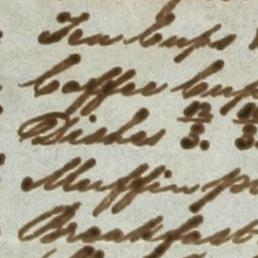 Tea Cups
Coffee Cups
Dishes 12/3. 1
Muffin p
Breakfast